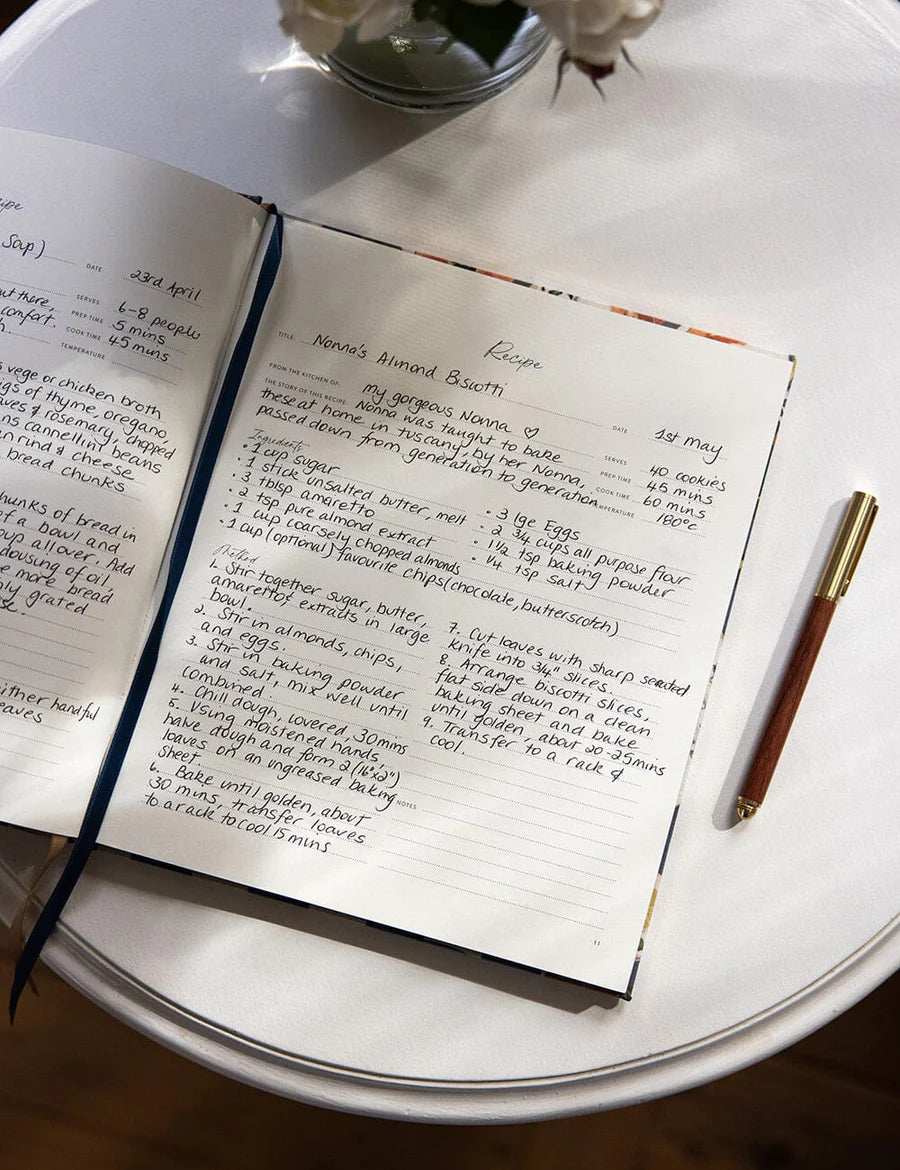 Soup)
DATE 23rd April
out there,
SERVES 6-8 people
comfort.
PREP TIME 5 mins
COOK TIME 45 mins
TEMPERATURE
vege or chicken broth
of thyme, oregano,
& rosemary, chopped
cannellini beans
rind & cheese
bread chunks
chunks of bread in
of a bowl and
soup all over. Add
dousing of oil
more bread,
grated
either handful
leaves
Recipe
TITLE: Nonna's Almond Biscotti
FROM THE KITCHEN OF: my gorgeous Nonna ♡
DATE 1st May
THE STORY OF THIS RECIPE: Nonna was taught to bake
these at home in tuscany, by her Nonna,
passed down from generation to generation
SERVES 40 cookies
PREP TIME 45 mins
COOK TIME 60 mins
TEMPERATURE 180°c
Ingredients
• 1 cup sugar
• 1 stick unsalted butter, melt
• 3 tblsp amaretto
• 2 tsp pure almond extract
• 1 cup coarsely chopped almonds
• 1 cup (optional) favourite chips (chocolate, butterscotch)
• 3 lge Eggs
• 2 3/4 cups all purpose flour
• 1 1/2 tsp baking powder
• 1/4 tsp salt
Method
1. Stir together sugar, butter,
amaretto, extracts in large
bowl.
2. Stir in almonds, chips,
and eggs.
3. Stir in baking powder
and salt, mix well until
combined.
4. Chill dough, covered, 30mins
5. Using moistened hands,
halve dough and form 2 (16"x2")
loaves on an ungreased baking
sheet.
6. Bake until golden, about
30 mins, transfer loaves
to a rack to cool 15 mins
7. Cut loaves with sharp serrated
knife into 3/4" slices.
8. Arrange biscotti slices,
flat side down on a clean
baking sheet and bake
until golden, about 20-25mins
9. Transfer to a rack &
cool.
NOTES
11